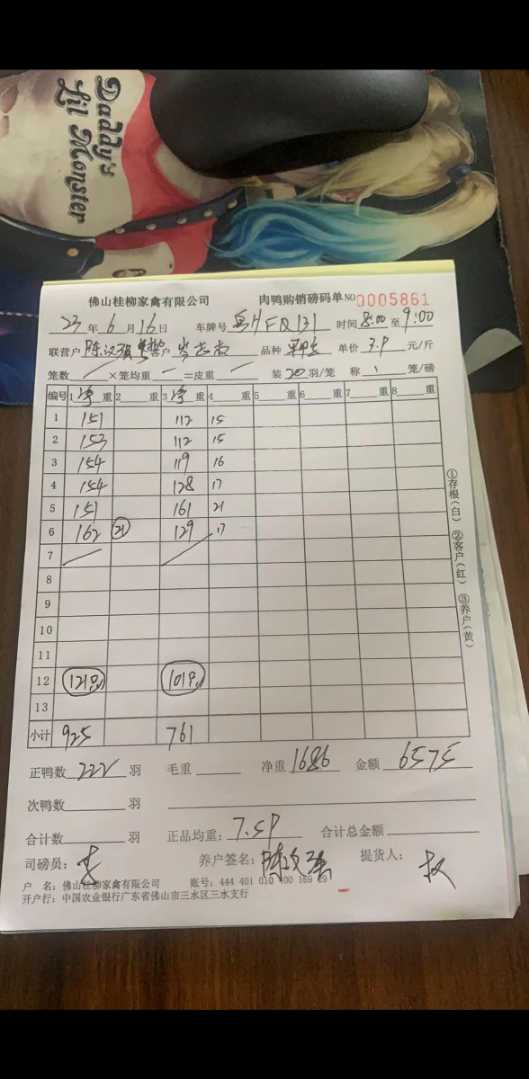 Daddy's
Lil Monster
佛山桂柳家禽有限公司 肉鸭购销磅码单 NO 0005861
23年6月16日 车牌号 粤HFQ131 时间 8:00 至 9:00
联营户 客户 品种 单价 3.9 元/斤
笼数 ×笼均重 =皮重 装 20 羽/笼 称 笼/磅
编号 1 净 重 2 重 3 净 重 4 重 5 重 6 重 7 重 8 重
1 151 112 15
2 153 112 15
3 154 119 16
4 154 128 17
5 151 161 21
6 162 21 129 17
7
8
9
10
11
12 121只 101只
13
小计 925 761
正鸭数 222 羽 毛重 净重 1686 金额 6575
次鸭数 羽
合计数 羽 正品均重: 7.59 合计总金额
司磅员: 养户签名: 提货人:
户 名: 佛山桂柳家禽有限公司 账号: 444 401 010 400 189 89
开户行: 中国农业银行广东省佛山市三水区三水支行
①存根(白) ②客户(红) ③养户(黄)